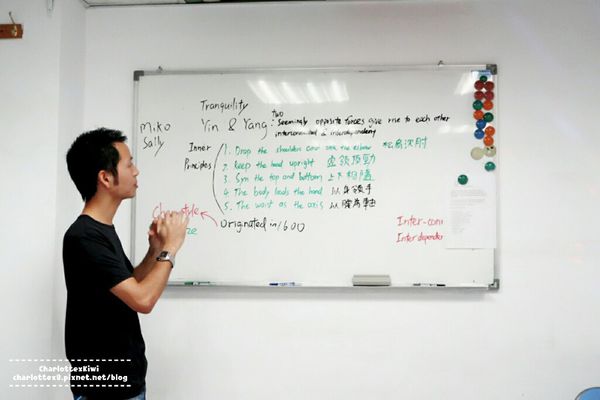 Tranquility
Miko
Sally
Yin & Yang: two
Seemingly opposite forces give rise to each other
interconnected & interdependency
Inner
Principles
1. Drop the shoulders and the elbow 松肩沉肘
2. Keep the head upright 虛領頂勁
3. Syn the top and bottom 上下相隨
4. The body leads the hand 以身領手
5. The waist as the axis 以腰為軸
style
Originated in 1600
Inter-con
Inter dependen
CharlottexKiwi
charlottex0.pixnet.net/blog